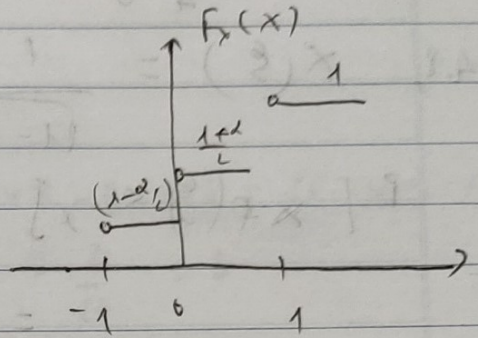 Fₓ(x)
1
1+α
2
(1-α/2)
-1 0 1